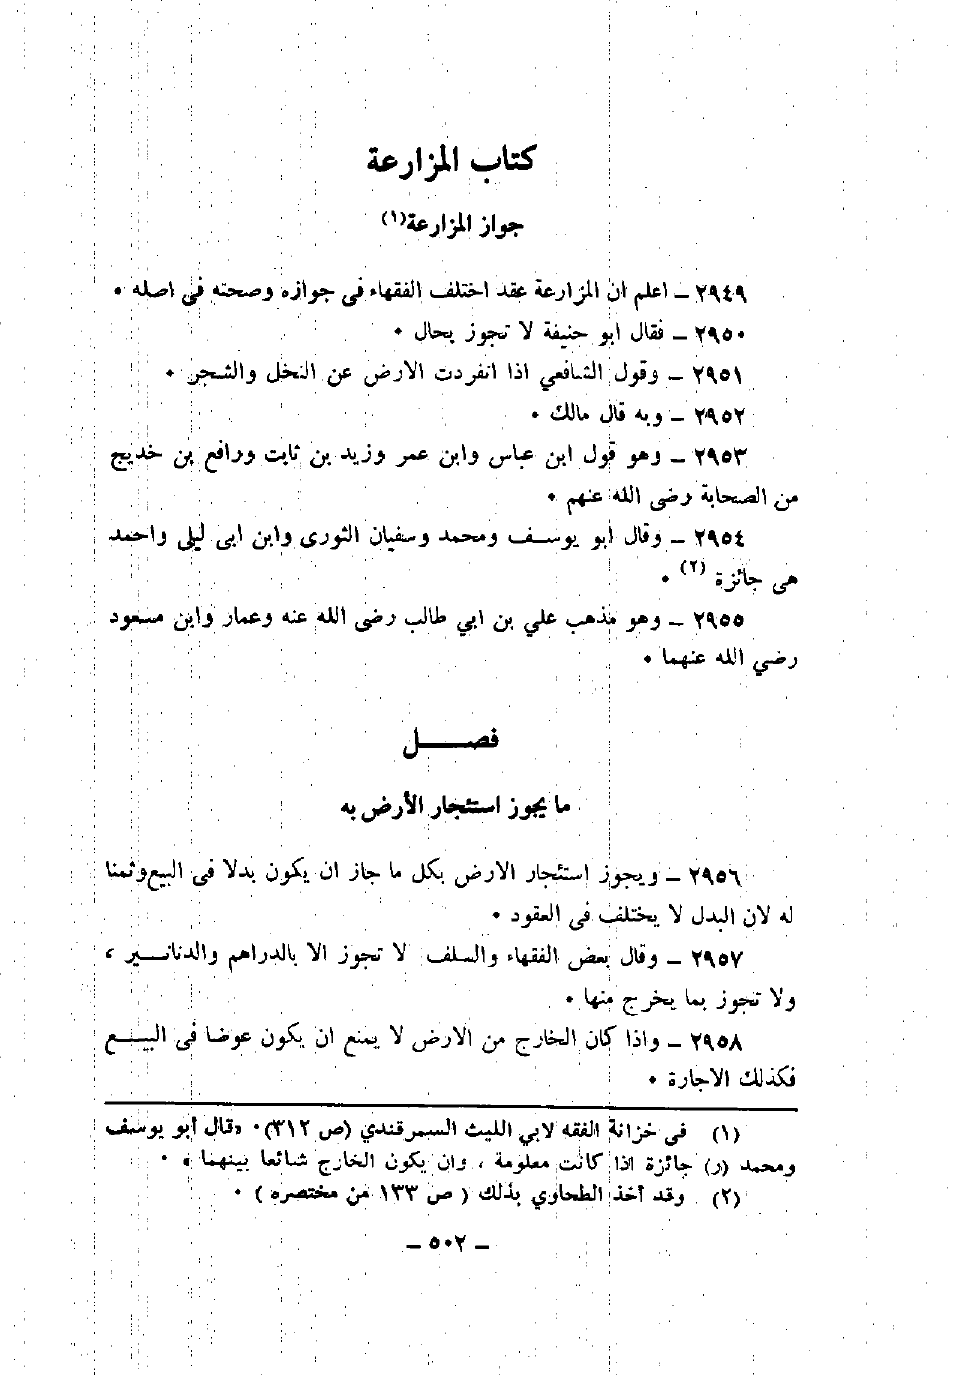 كتاب المزارعة
جواز المزارعة(١)
٢٩٤٩ ـ اعلم ان المزارعة عقد اختلف الفقهاء فى جوازه وصحته فى اصله ٠
٢٩٥٠ ـ فقال ابو حنيفة لا تجوز بحال ٠
٢٩٥١ ـ وقول الشافعي اذا انفردت الارض عن النخل والشجر ٠
٢٩٥٢ ـ وبه قال مالك ٠
٢٩٥٣ ـ وهو قول ابن عباس وابن عمر وزيد بن ثابت ورافع بن خديج
من الصحابة رضى الله عنهم ٠
٢٩٥٤ ـ وقال أبو يوسـف ومحمد وسفيان الثورى وابن ابى ليلى واحمد
هى جائزة (٢) ٠
٢٩٥٥ ـ وهو مذهب علي بن ابي طالب رضى الله عنه وعمار وابن مسعود
رضي الله عنهما ٠
فصـــــل
ما يجوز استئجار الأرض به
٢٩٥٦ ـ ويجوز استئجار الارض بكل ما جاز ان يكون بدلا فى البيع وثمنا
له لان البدل لا يختلف فى العقود ٠
٢٩٥٧ ـ وقال بعض الفقهاء والسلف لا تجوز الا بالدراهم والدنانـــير ،
ولا تجوز بما يخرج منها ٠
٢٩٥٨ ـ واذا كان الخارج من الارض لا يمنع ان يكون عوضا فى البيـــع
فكذلك الاجارة ٠
(١) فى خزانة الفقه لابي الليث السمرقندي (ص ٣١٢)٠ «قال أبو يوسف
ومحمد (ر) جائزة اذا كانت معلومة ، وان يكون الخارج شائعا بينهما » ٠
(٢) وقد أخذ الطحاوي بذلك ( ص ١٣٣ من مختصره ) ٠
ـ ٥٠٢ ـ